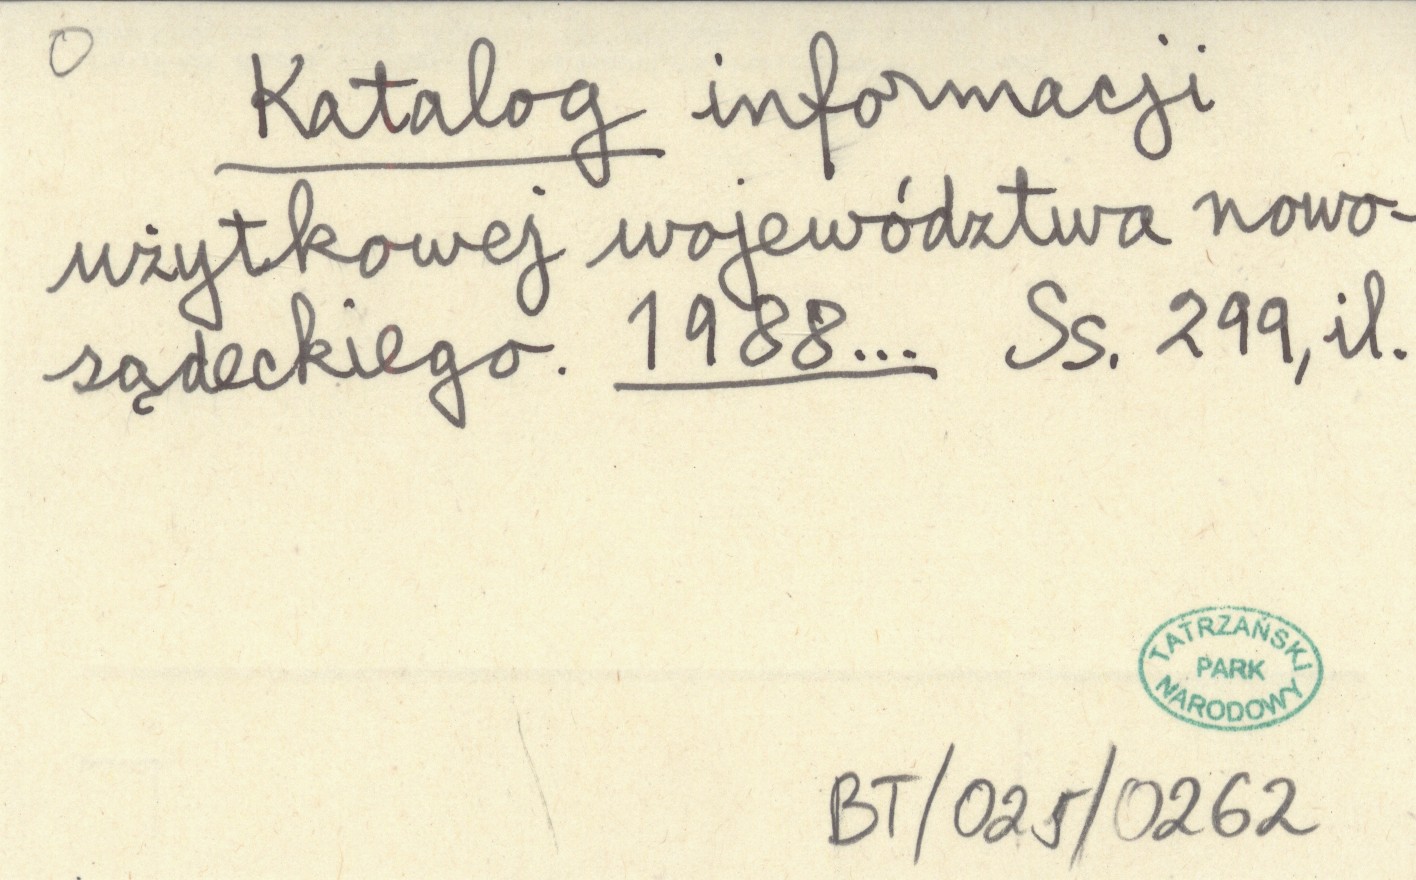 O
Katalog informacji
użytkowej województwa nowo-
sądeckiego. 1988... Ss. 299, il.
TATRZAŃSKI
PARK
NARODOWY
BT/025/0262